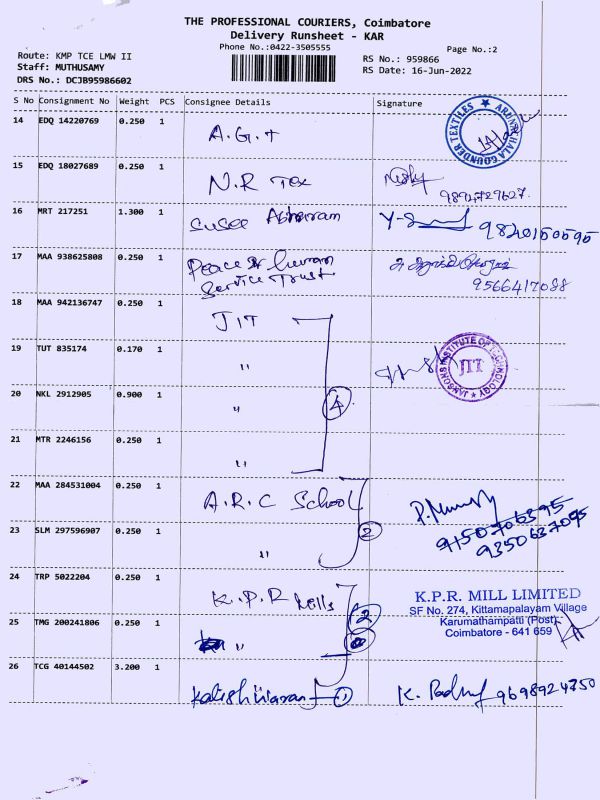 THE PROFESSIONAL COURIERS, Coimbatore
Delivery Runsheet - KAR
Phone No.:0422-3505555
Page No.:2
Route: KMP TCE LMW II
Staff: MUTHUSAMY
DRS No.: DCJB95986602
RS No.: 959866
RS Date: 16-Jun-2022
S No Consignment No Weight PCS Consignee Details Signature
14 EDQ 14220769 0.250 1 A.G.T
ARUNACHALA GOUNDER TEXTILES
15 EDQ 18027689 0.250 1 N.R Tex
9894729627
16 MRT 217251 1.300 1 9840150595
17 MAA 938625808 0.250 1 Peace & human
Service Trust
9566417088
18 MAA 942136747 0.250 1 JIT
19 TUT 835174 0.170 1 "
JANSONS INSTITUTE OF TECHNOLOGY
JIT
20 NKL 2912905 0.900 1 " 4
21 MTR 2246156 0.250 1 "
22 MAA 284531004 0.250 1 A.R.C School
9150706395
23 SLM 297596907 0.250 1 " 2
9350637095
24 TRP 5022204 0.250 1 K.P.R Mills
K.P.R. MILL LIMITED
SF No. 274, Kittamapalayam Village
Karumathampatti (Post),
Coimbatore - 641 659
25 TMG 200241806 0.250 1 " 2
26 TCG 40144502 3.200 1 Katishwaran 1
9698924750